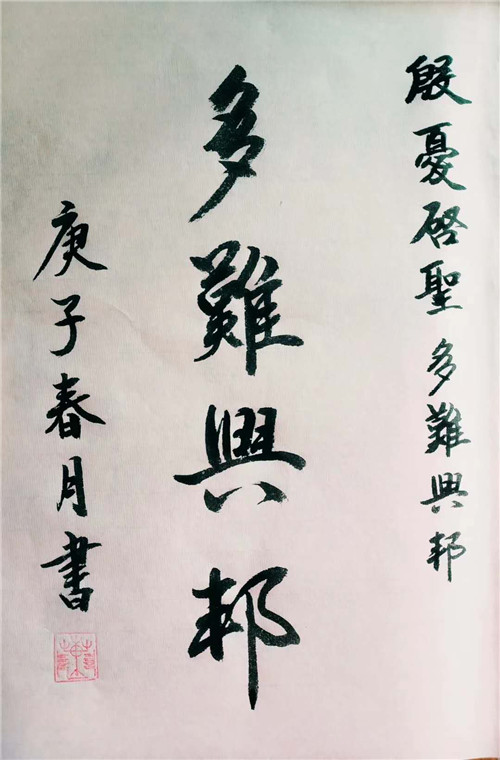 殷憂啓聖多難興邦
多難興邦
庚子春月書